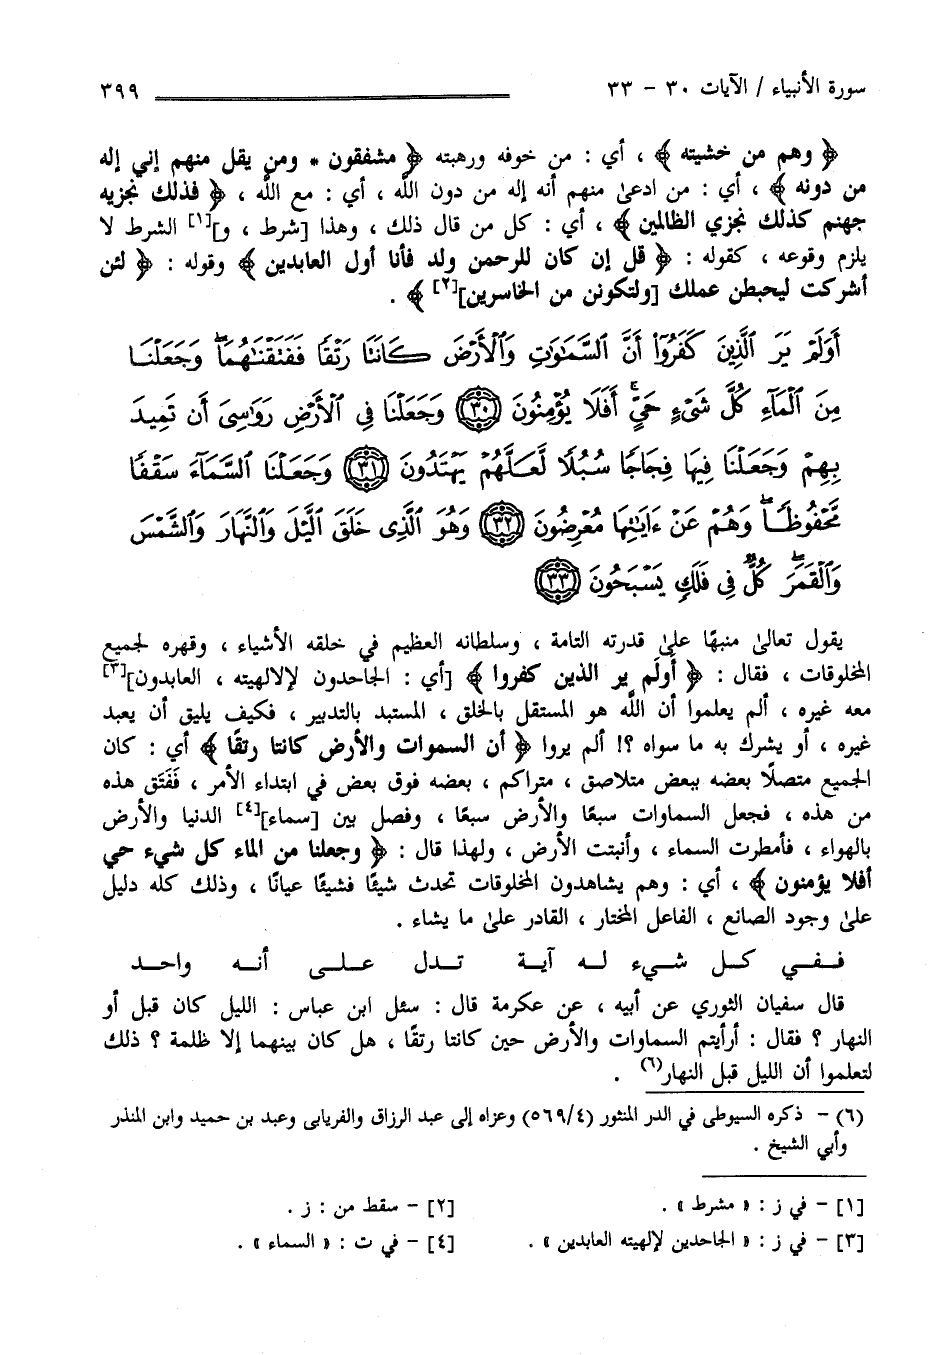 سورة الأنبياء / الآيات ٣٠ - ٣٣ ٣٩٩
﴿ وهم من خشيته ﴾ ، أي : من خوفه ورهبته ﴿ مشفقون * ومن يقل منهم إني إله
من دونه ﴾ ، أي : من ادعىٰ منهم أنه إله من دون الله ، أي : مع الله ، ﴿ فذلك نجزيه
جهنم كذلك نجزي الظالمين ﴾ ، أي : كل من قال ذلك ، وهذا [شرط ، و][١] الشرط لا
يلزم وقوعه ، كقوله : ﴿ قل إن كان للرحمن ولد فأنا أول العابدين ﴾ وقوله : ﴿ لئن
أشركت ليحبطن عملك [ولتكونن من الخاسرين][٢] ﴾ .
أَوَلَمْ يَرَ ٱلَّذِينَ كَفَرُوٓا۟ أَنَّ ٱلسَّمَـٰوَٰتِ وَٱلْأَرْضَ كَانَتَا رَتْقًا فَفَتَقْنَـٰهُمَا ۖ وَجَعَلْنَا
مِنَ ٱلْمَآءِ كُلَّ شَىْءٍ حَىٍّ ۖ أَفَلَا يُؤْمِنُونَ ﴿٣٠﴾ وَجَعَلْنَا فِى ٱلْأَرْضِ رَوَٰسِىَ أَن تَمِيدَ
بِهِمْ وَجَعَلْنَا فِيهَا فِجَاجًا سُبُلًا لَّعَلَّهُمْ يَهْتَدُونَ ﴿٣١﴾ وَجَعَلْنَا ٱلسَّمَآءَ سَقْفًا
مَّحْفُوظًا ۖ وَهُمْ عَنْ ءَايَـٰتِهَا مُعْرِضُونَ ﴿٣٢﴾ وَهُوَ ٱلَّذِى خَلَقَ ٱلَّيْلَ وَٱلنَّهَارَ وَٱلشَّمْسَ
وَٱلْقَمَرَ ۖ كُلٌّ فِى فَلَكٍ يَسْبَحُونَ ﴿٣٣﴾
يقول تعالىٰ منبهًا علىٰ قدرته التامة ، وسلطانه العظيم في خلقه الأشياء ، وقهره لجميع
المخلوقات ، فقال : ﴿ أولم ير الذين كفروا ﴾ [أي : الجاحدون لإلالهيته ، العابدون][٣]
معه غيره ، ألم يعلموا أن الله هو المستقل بالخلق ، المستبد بالتدبير ، فكيف يليق أن يعبد
غيره ، أو يشرك به ما سواه ؟! ألم يروا ﴿ أن السموات والأرض كانتا رتقًا ﴾ أي : كان
الجميع متصلًا بعضه ببعض متلاصق ، متراكم ، بعضه فوق بعض في ابتداء الأمر ، فَفَتَق هذه
من هذه ، فجعل السماوات سبعًا والأرض سبعًا ، وفصل بين [سماء][٤] الدنيا والأرض
بالهواء ، فأمطرت السماء ، وأنبتت الأرض ، ولهذا قال : ﴿ وجعلنا من الماء كل شيء حي
أفلا يؤمنون ﴾ ، أي : وهم يشاهدون المخلوقات تحدث شيئًا فشيئًا عيانًا ، وذلك كله دليل
علىٰ وجود الصانع ، الفاعل المختار ، القادر علىٰ ما يشاء .
فـفـي كـل شـيء لـه آيـة تـدل عـلـى أنـه واحـد
قال سفيان الثوري عن أبيه ، عن عكرمة قال : سئل ابن عباس : الليل كان قبل أو
النهار ؟ فقال : أرأيتم السماوات والأرض حين كانتا رتقًا ، هل كان بينهما إلا ظلمة ؟ ذلك
لتعلموا أن الليل قبل النهار(٦) .
(٦) - ذكره السيوطى في الدر المنثور (٥٦٩/٤) وعزاه إلى عبد الرزاق والفريابى وعبد بن حميد وابن المنذر
وأبي الشيخ .
[١] - في ز : « مشرط » . [٢] - سقط من : ز .
[٣] - في ز : « الجاحدين لإلهيته العابدين » . [٤] - في ت : « السماء » .